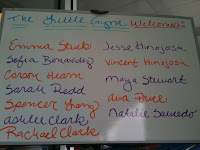 The Little Gym Welcomes:
Emma Stuck
Sofia Benavidez
Carson Hearn
Sarah Redd
Spencer
Ashlee Clark
Rachael Clark
Jesse Hinojosa
Vincent Hinojosa
Maya Stewart
Ava Price
Natalie Saucedo